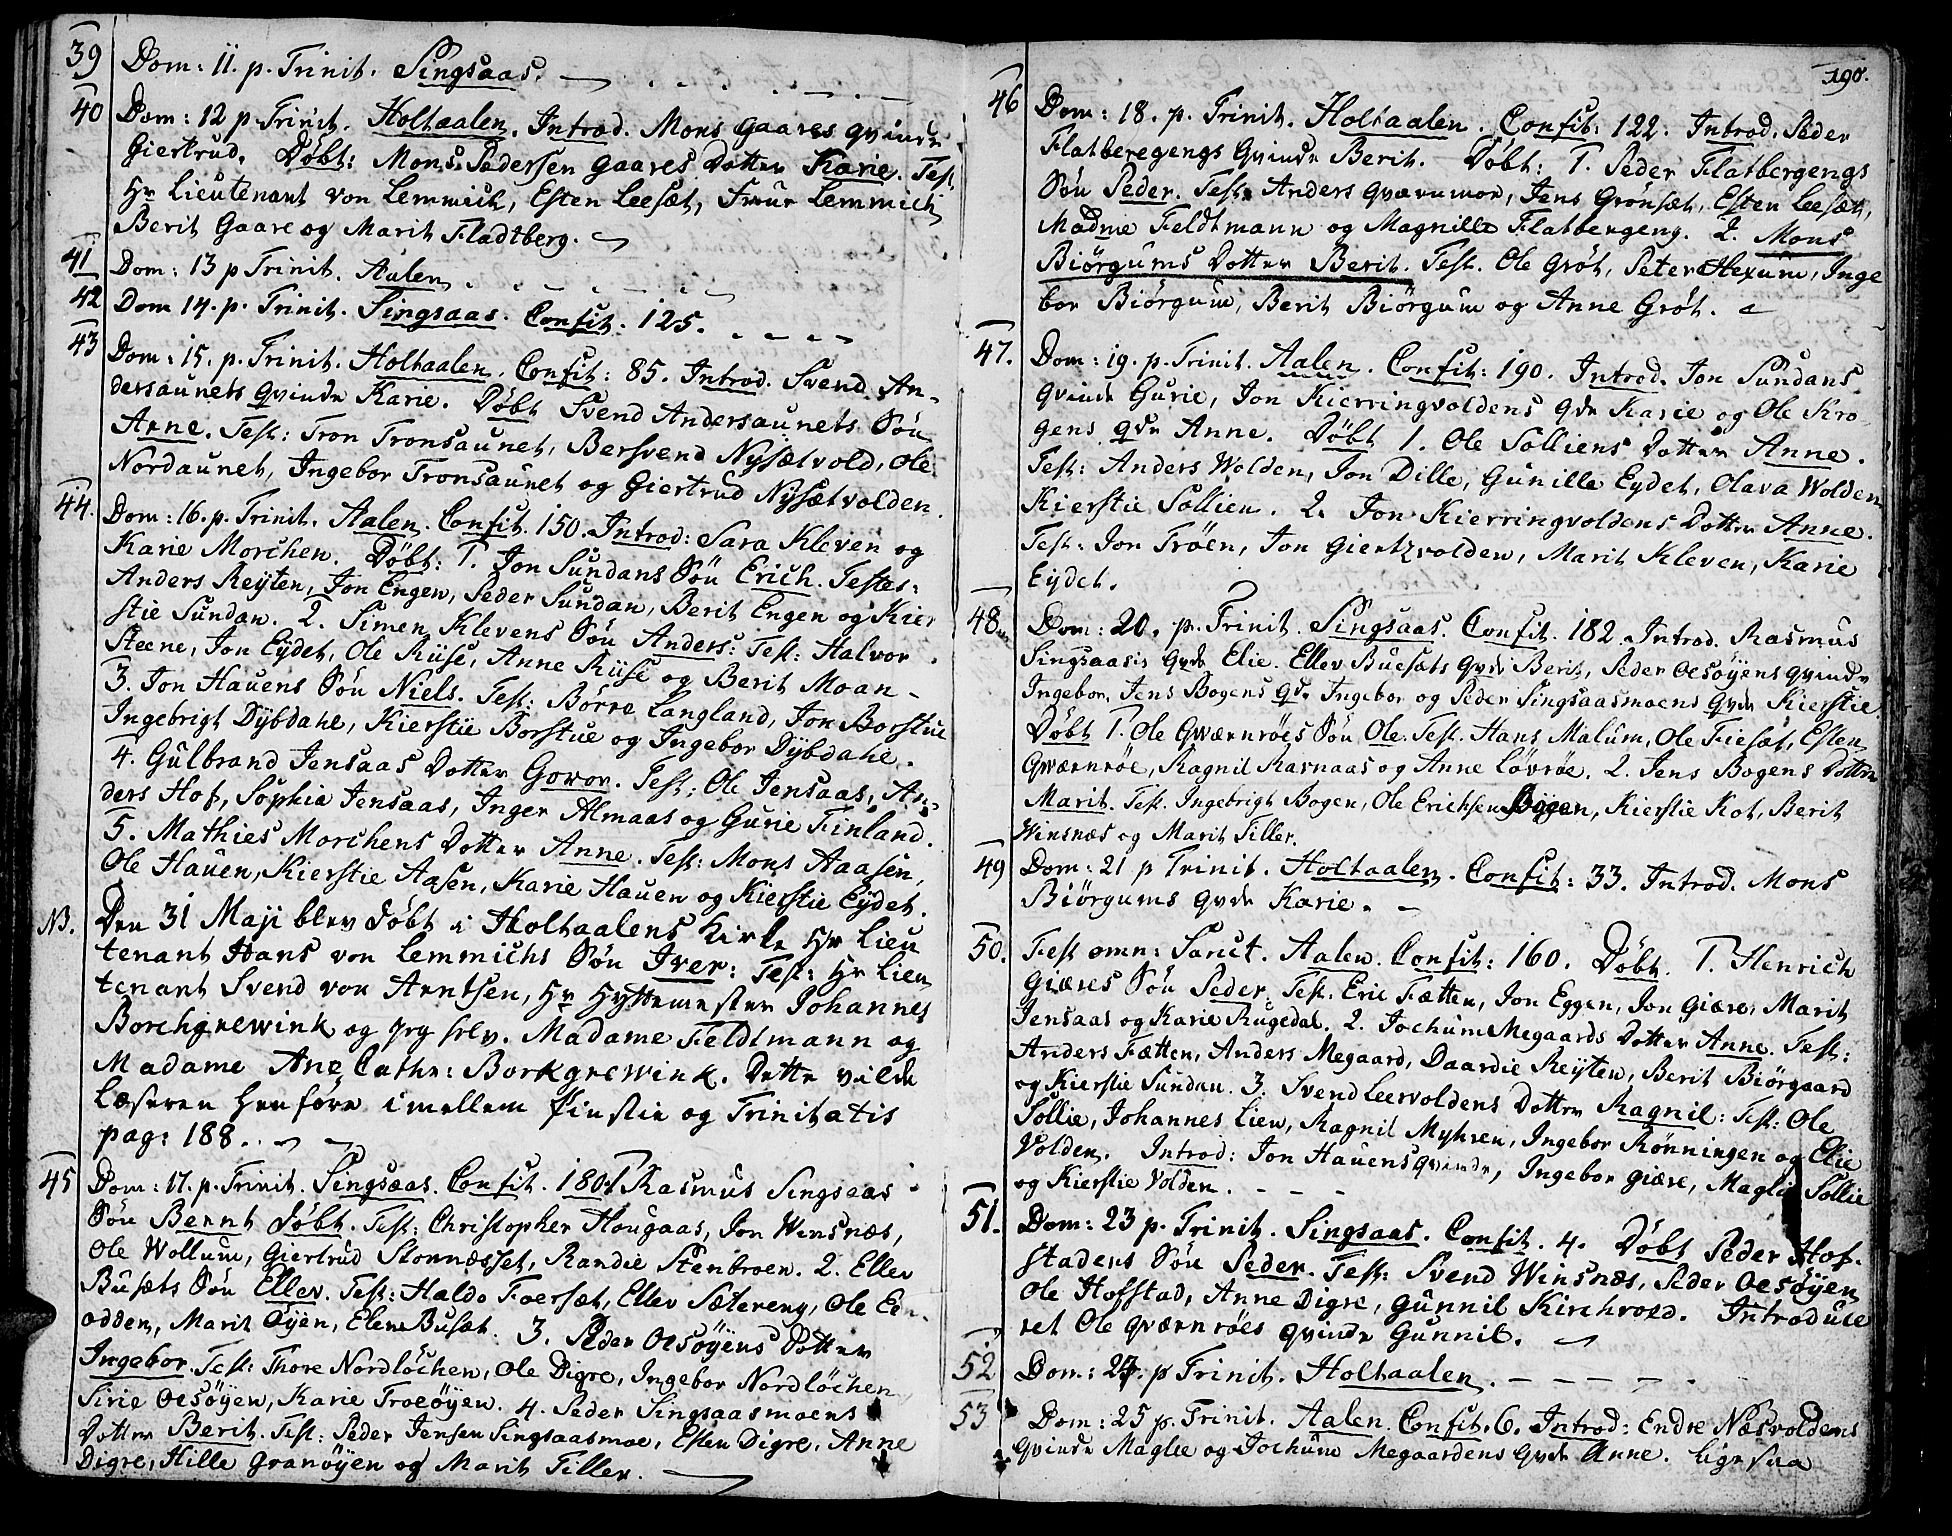 39 Dom: 11. p. Trinit. Singsaas.
40 Dom: 12 p Trinit. Holtaalen. Introd. Mons Gaares qvinde
Giertrud. Döbt: Mons Pedersen Gaares Dotter Karie. Test.
Hr Lieutenant von Lemmich, Esten Leesæt, Frue Lemmich
Berit Gaare og Marit Fladtberg.
41 Dom: 13 p Trinit. Aalen
42 Dom 14. p. Trinit. Singsaas. Confit. 125.
43 Dom: 15. p. Trinit. Holtaalen. Confit: 85. Introd. Svend An-
dersaunets Qvinde Karie. Döbt Svend Andersaunets Sön
Arne. Test: Tron Tronsaunet, Bersvend Nysætvold, Ole
Nordaunet, Ingebor Tronsaunet og Giertrud Nysætvolden.
44. Dom: 16. p. Trinit. Aalen. Confit. 150. Introd: Sara Kleven og
Karie Morchen. Döbt: 1. Jon Sundans Sön Erich. Testes:
Anders Reyten, Jon Engen, Peder Sundan, Berit Engen og Kier
stie Sundan. 2. Simen Klevens Sön Anders: Test: Halvor
Steene, Jon Eydet, Ole Riise, Anne Riise og Berit Moan-
3. Jon Hauens Sön Niels. Test: Börre Langland, Jon Borstue
Ingebrigt Dybdahl, Kierstie Borstue og Ingebor Dybdahl.
4. Gulbrand Jensaas Dotter Gowor. Test: Ole Jensaas, An-
ders Hof, Sophia Jensaas, Inger Almaas og Gurie Finland.
5. Mathies Morchens Dotter Anne. Test: Mons Aaasen,
Ole Hauen, Kierstie Aasen, Karie Hauen og Kierstie Eydet.
NB. Den 31 Maji blev Döbt i Holtaalens Kirke Hr Lieu
tenant Hans von Lemmichs Sön Iver: Test: Hr Lieu
tenant Svend von Arntsen, Hr Hyttemester Johannes
Borchgrewink og jeg selv. Madame Feldtmann og
Madame Ane Cathr: Borkgrewink. Dette vilde
Læseren henföre imellem Pinstie og Trinitatis
pag: 188.
45 Dom: 17. p. Trinit. Singsaas. Confit. 180. 1 Rasmus Singsaas
Sön Bernt Döbt. Test: Christopher Hougaas, Jon Winsnæs,
Ole Wollum, Giertrud Stonnesset, Randie Stenbroen. 2. Ellev
Busæts Sön Ellev. Test: Haldo Foersæt, Ellev Sætereng, Ole En-
odden, Marit Öyen, Elen Busæt. 3. Peder Oesöyens Dotter
Ingebor. Test: Thore Nordlöchen, Ole Digre, Ingebor Nordlöchen,
Sirie Oesöyen, Karie Troeöyen. 4. Peder Singsaasmoens
Dotter Berit. Test: Peder Jensen Singsaasmoe, Esten Digre, Anne
Digre, Hille Granöyen og Marit Tiller.
190.
46 Dom: 18. p. Trinit. Holtaalen. Confit: 122. Introd. Peder
Flatberegengs Qvinde Berit. Döbt: 1. Peder Flatbergengs
Sön Peder. Test. Anders Qværnmoe, Jens Grönsæt, Esten Leesæt,
Madme Feldtmann og Magnille Flatbergeng. 2. Mons
Biörgums Dotter Berit. Test. Ole Gröt, Peter Hexum, Inge
bor Biörgum, Berit Biörgum og Anne Gröt.
47. Dom: 19. p. Trinit. Aalen. Confit: 190. Introd. Jon Sundans
Qvinde Gurie, Jon Kierringvoldens Qvde Karie og Ole Kro
gens qvde Anne. Döbt 1. Ole Solliens Dotter Anne.
Test: Anders Wolden, Jon Dille, Gunille Eydet, Olava Wolden
Kierstie Sollien. 2. Jon Kierringvoldens Dotter Anne.
Test: Jon Tröen, Jon Giertzvolden, Marit Kleven, Karie
Eydet.
48 Dom: 20. p. Trinit. Singsaas. Confit. 182. Introd. Rasmus
Singsaasis Qvde Elie. Ellev Buesæts Qvde Berit, Peder Oesöyens qvinde
Ingebor, Jens Bogens Qvde Ingebor og Peder Singsaasmoens Qvde Kierstie
Döbt 1. Ole Qwærnröes Sön Ole. Test. Hans Malum, Ole Fiesæt, Esten
Qwærnröe, Ragnil Ravnaas og Anne Lövröe. 2. Jens Bogens Dotter
Marit. Test. Ingebrigt Bogen, Ole Erichsen Bogen, Kierstie Kot, Berit
Winsnæs og Marit Tiller.
49 Dom: 21 p Trinit. Holtaalen. Confit: 33. Introd. Mons
Biörgums Qvde Karie.
50. Fest omn: Sanct. Aalen. Confit: 160. Döbt. 1. Henrich
Giæres Sön Peder. Test. Eric Fætten, Jon Eggen, Jon Giære, Marit
Jensaas og Karie Rugedal. 2. Jochum Megaards Dotter Anne. Test:
Anders Fætten, Anders Megaard, Daardie Reyten, Berit Biörgaard
og Kierstie Sundan. 3. Svend Leervoldens Dotter Ragnil: Test: Ole
Sollie, Johannes Lien, Ragnil Myhren, Ingebor Rönningen og Elie
Volden. Introd: Jon Hauens Qvinde, Ingebor Giære, Maglie Sollie
og Kierstie Volden.
51. Dom: 23 p. Trinit. Singsaas. Confit. 4. Döbt Peder Hof-
stadens Sön Peder. Test: Svend Winsnæs, Peder Oesöyen,
Ole Hofstad, Anne Digre, Gunnil Kirchvold. Introduce
ret Ole Qværnröes Qvinde Gunnil.
52 Dom: 24. p Trinit. Holtaalen.
53 Dom: 25 p. Trinit. Aalen. Confit. 6. Introd: Endre Næsvoldens
Qvinde Maglie og Jochum Megaardens Qvde Anne. Ligesaa